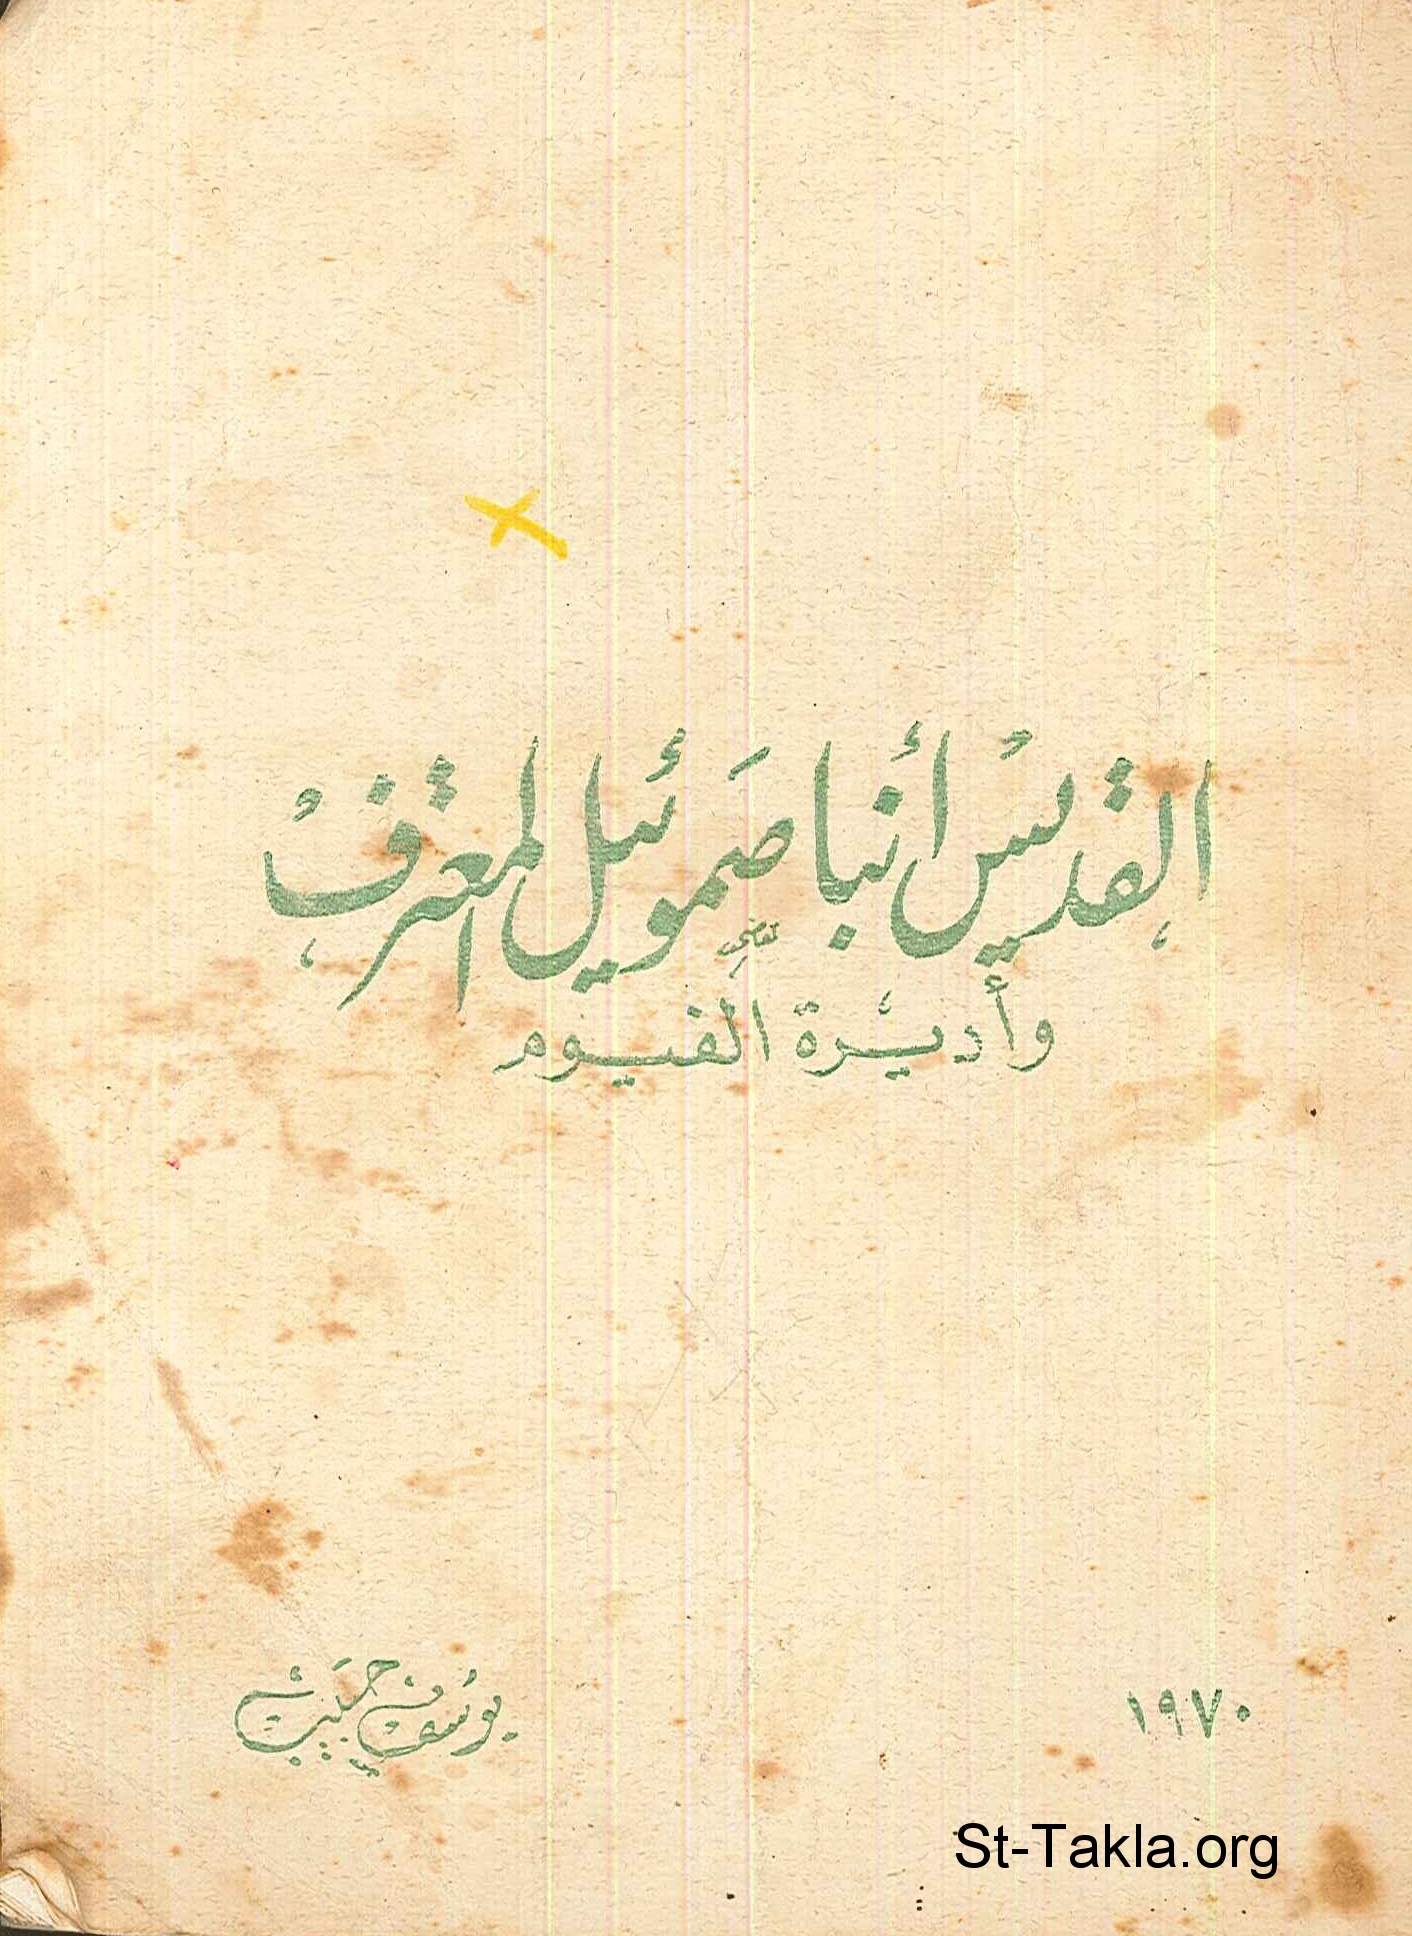 القديس أنبا صموئيل المعترف
وأديرة الفيوم
يوسف حبيب
١٩٧٠
St-Takla.org